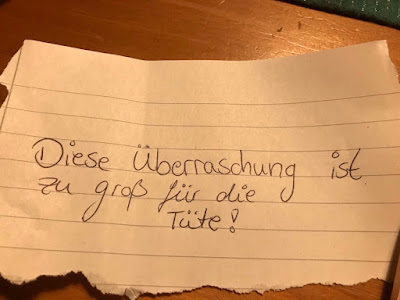 Diese Überraschung ist
zu groß für die
Tüte!